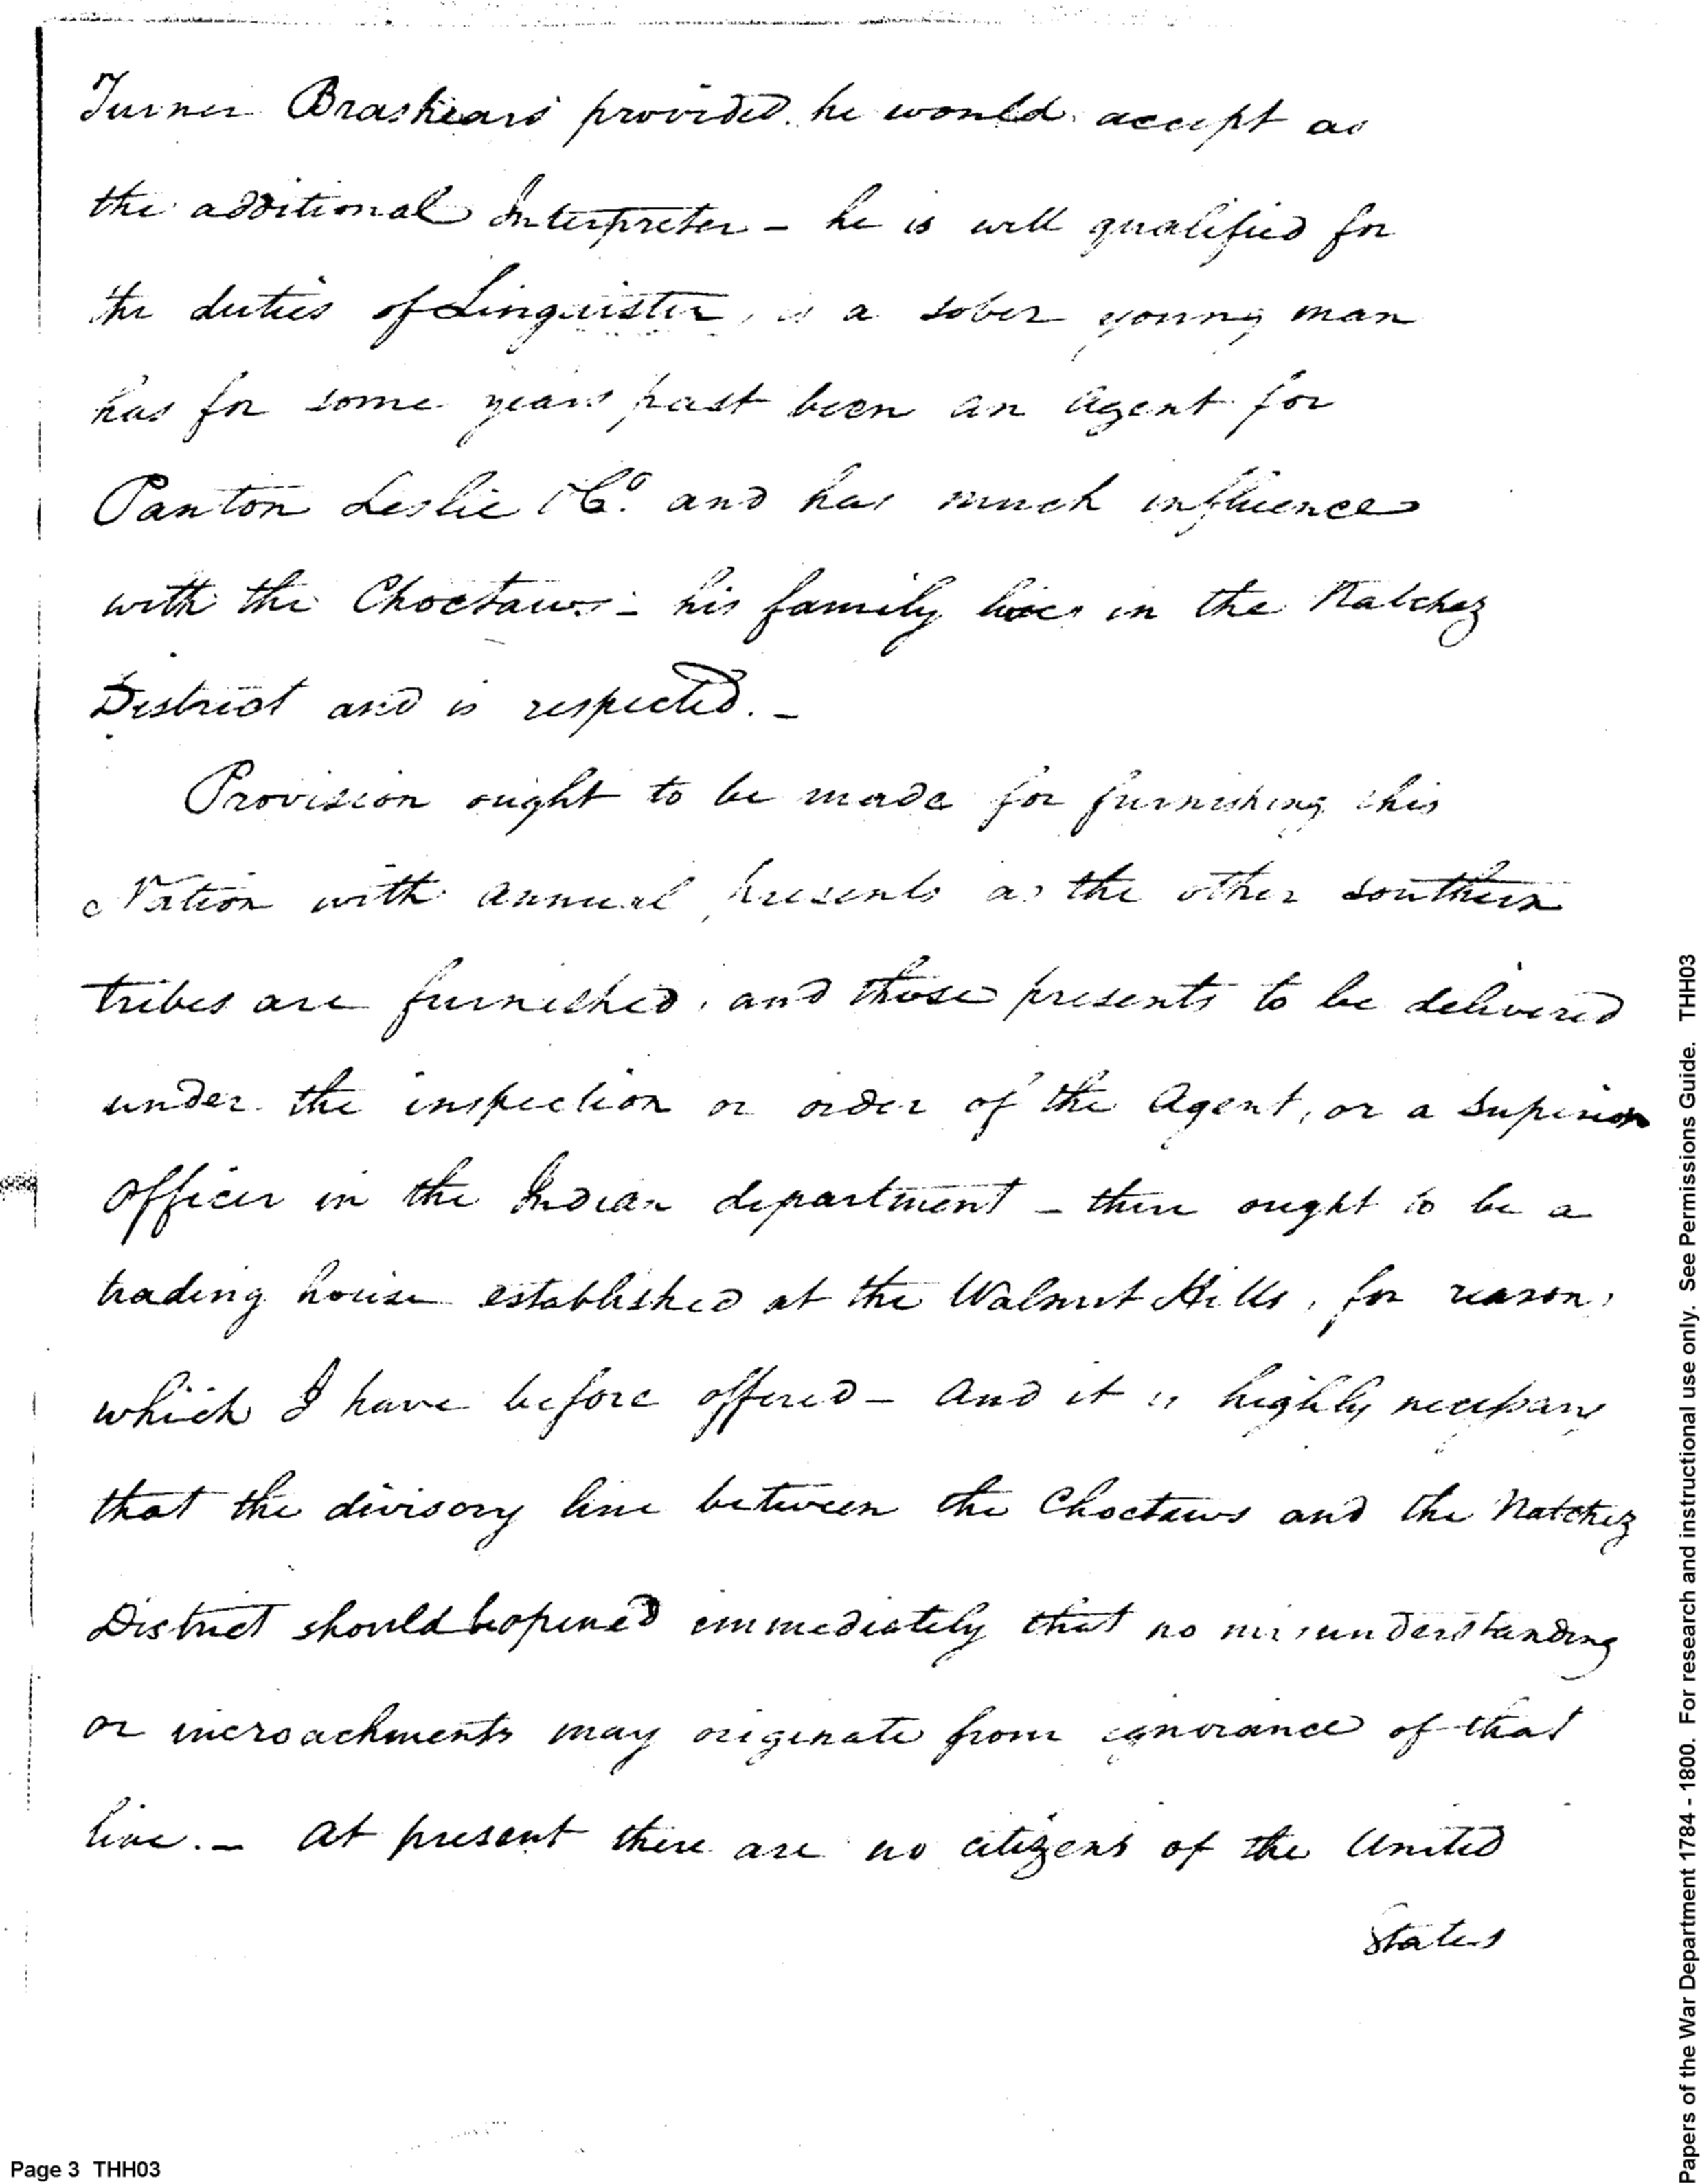 Turner Brashears provided he would accept as
the additional Interpreter - he is well qualified for
the duties of Linguister, is a sober young man
has for some years past been an agent for
Panton Leslie & Co. and has much influence
with the Choctaws - his family lives in the Natchez
District and is respected. -
Provision ought to be made for furnishing this
Nation with annual presents as the other southern
tribes are furnished, and those presents to be delivered
under the inspection or order of the Agent, or a Superior
Officer in the Indian department - there ought to be a
trading house established at the Walnut Hills, for reasons
which I have before offered - and it is highly necessary
that the divisory line between the Choctaws and the Natchez
District should be opened immediately that no misunderstanding
or incroachments may originate from ignorance of that
line. - At present there are no citizens of the United
States
Page 3 THH03
Papers of the War Department 1784 - 1800. For research and instructional use only. See Permissions Guide. THH03